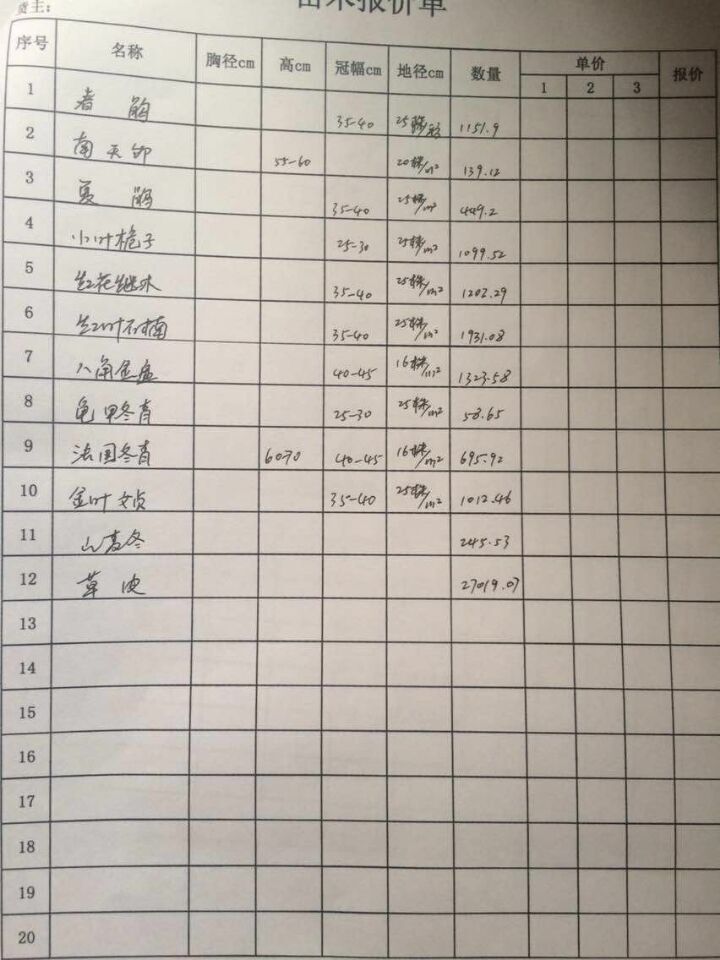 货主:
苗木报价单
序号 名称 胸径cm 高cm 冠幅cm 地径cm 数量 单价 报价
1 2 3
1 春鹃 35-40 25株/m² 1151.9
2 南天竹 55-60 20株/m² 139.12
3 夏鹃 35-40 25株/m² 449.2
4 小叶栀子 25-30 25株/m² 1099.52
5 红花继木 35-40 25株/m² 1203.29
6 红叶石楠 35-40 25株/m² 1931.08
7 八角金盘 40-45 16株/m² 1323.58
8 龟甲冬青 25-30 25株/m² 58.65
9 法国冬青 60-70 40-45 16株/m² 695.92
10 金叶女贞 35-40 25株/m² 1012.46
11 山麦冬 245.53
12 草皮 27019.07
13
14
15
16
17
18
19
20